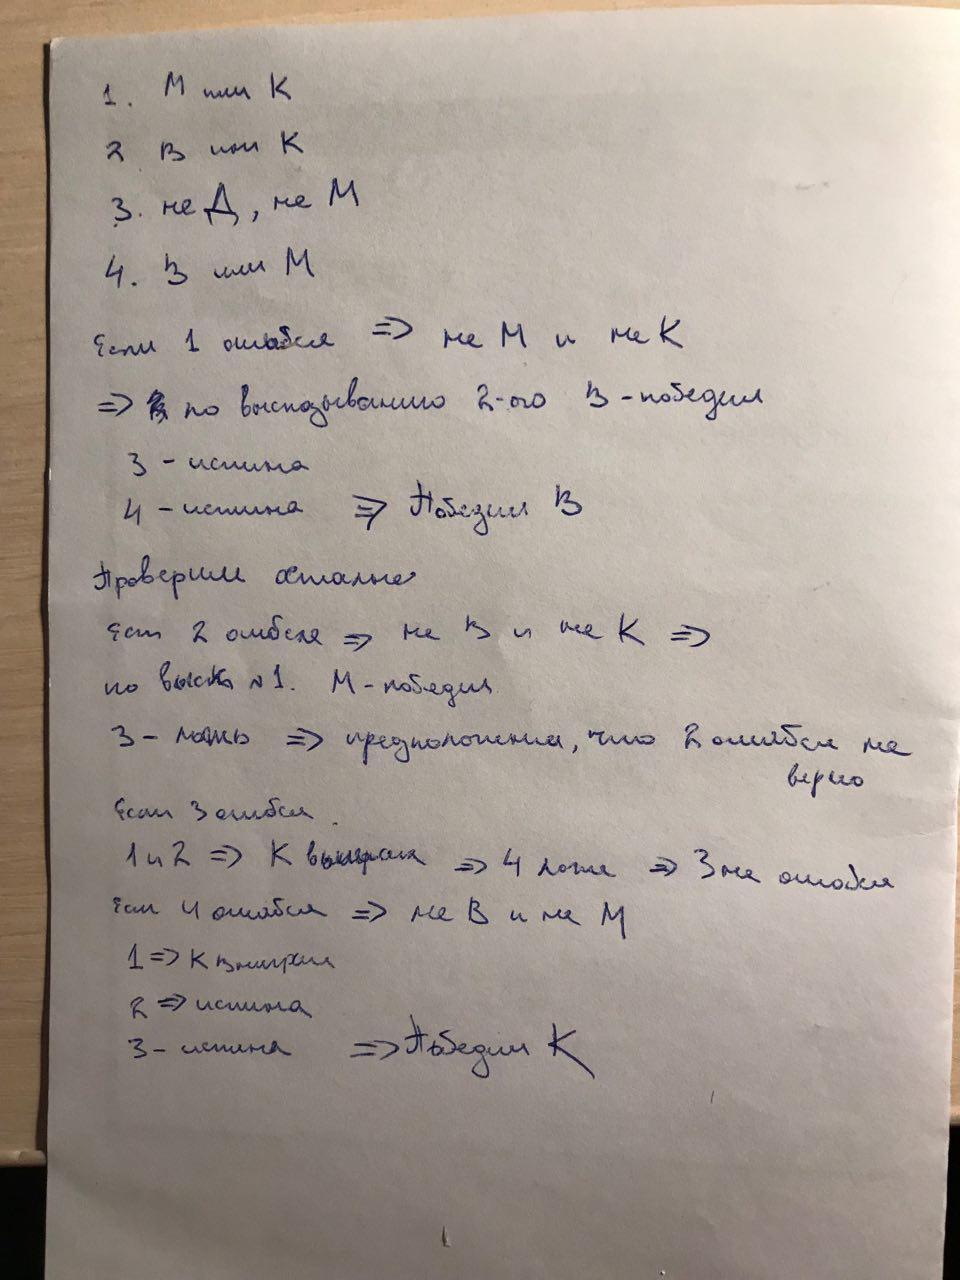 1. М или К
2 В или К
3. не Д, не М
4. В или М
Если 1 ошибся => не М и не К
=> по высказыванию 2-ого В - победил
3 - истина
4 - истина => Победил В
Проверим остальные
Если 2 ошибся => не В и не К =>
по выск №1. М - победил
3 - ложь => предположении, что 2 ошибся не
верно
Если 3 ошибся.
1 и 2 => К выиграл => 4 ложь => 3 не ошибся
Если 4 ошибся => не В и не М
1 => К выиграл
2 => истина
3 - истина => Победил К